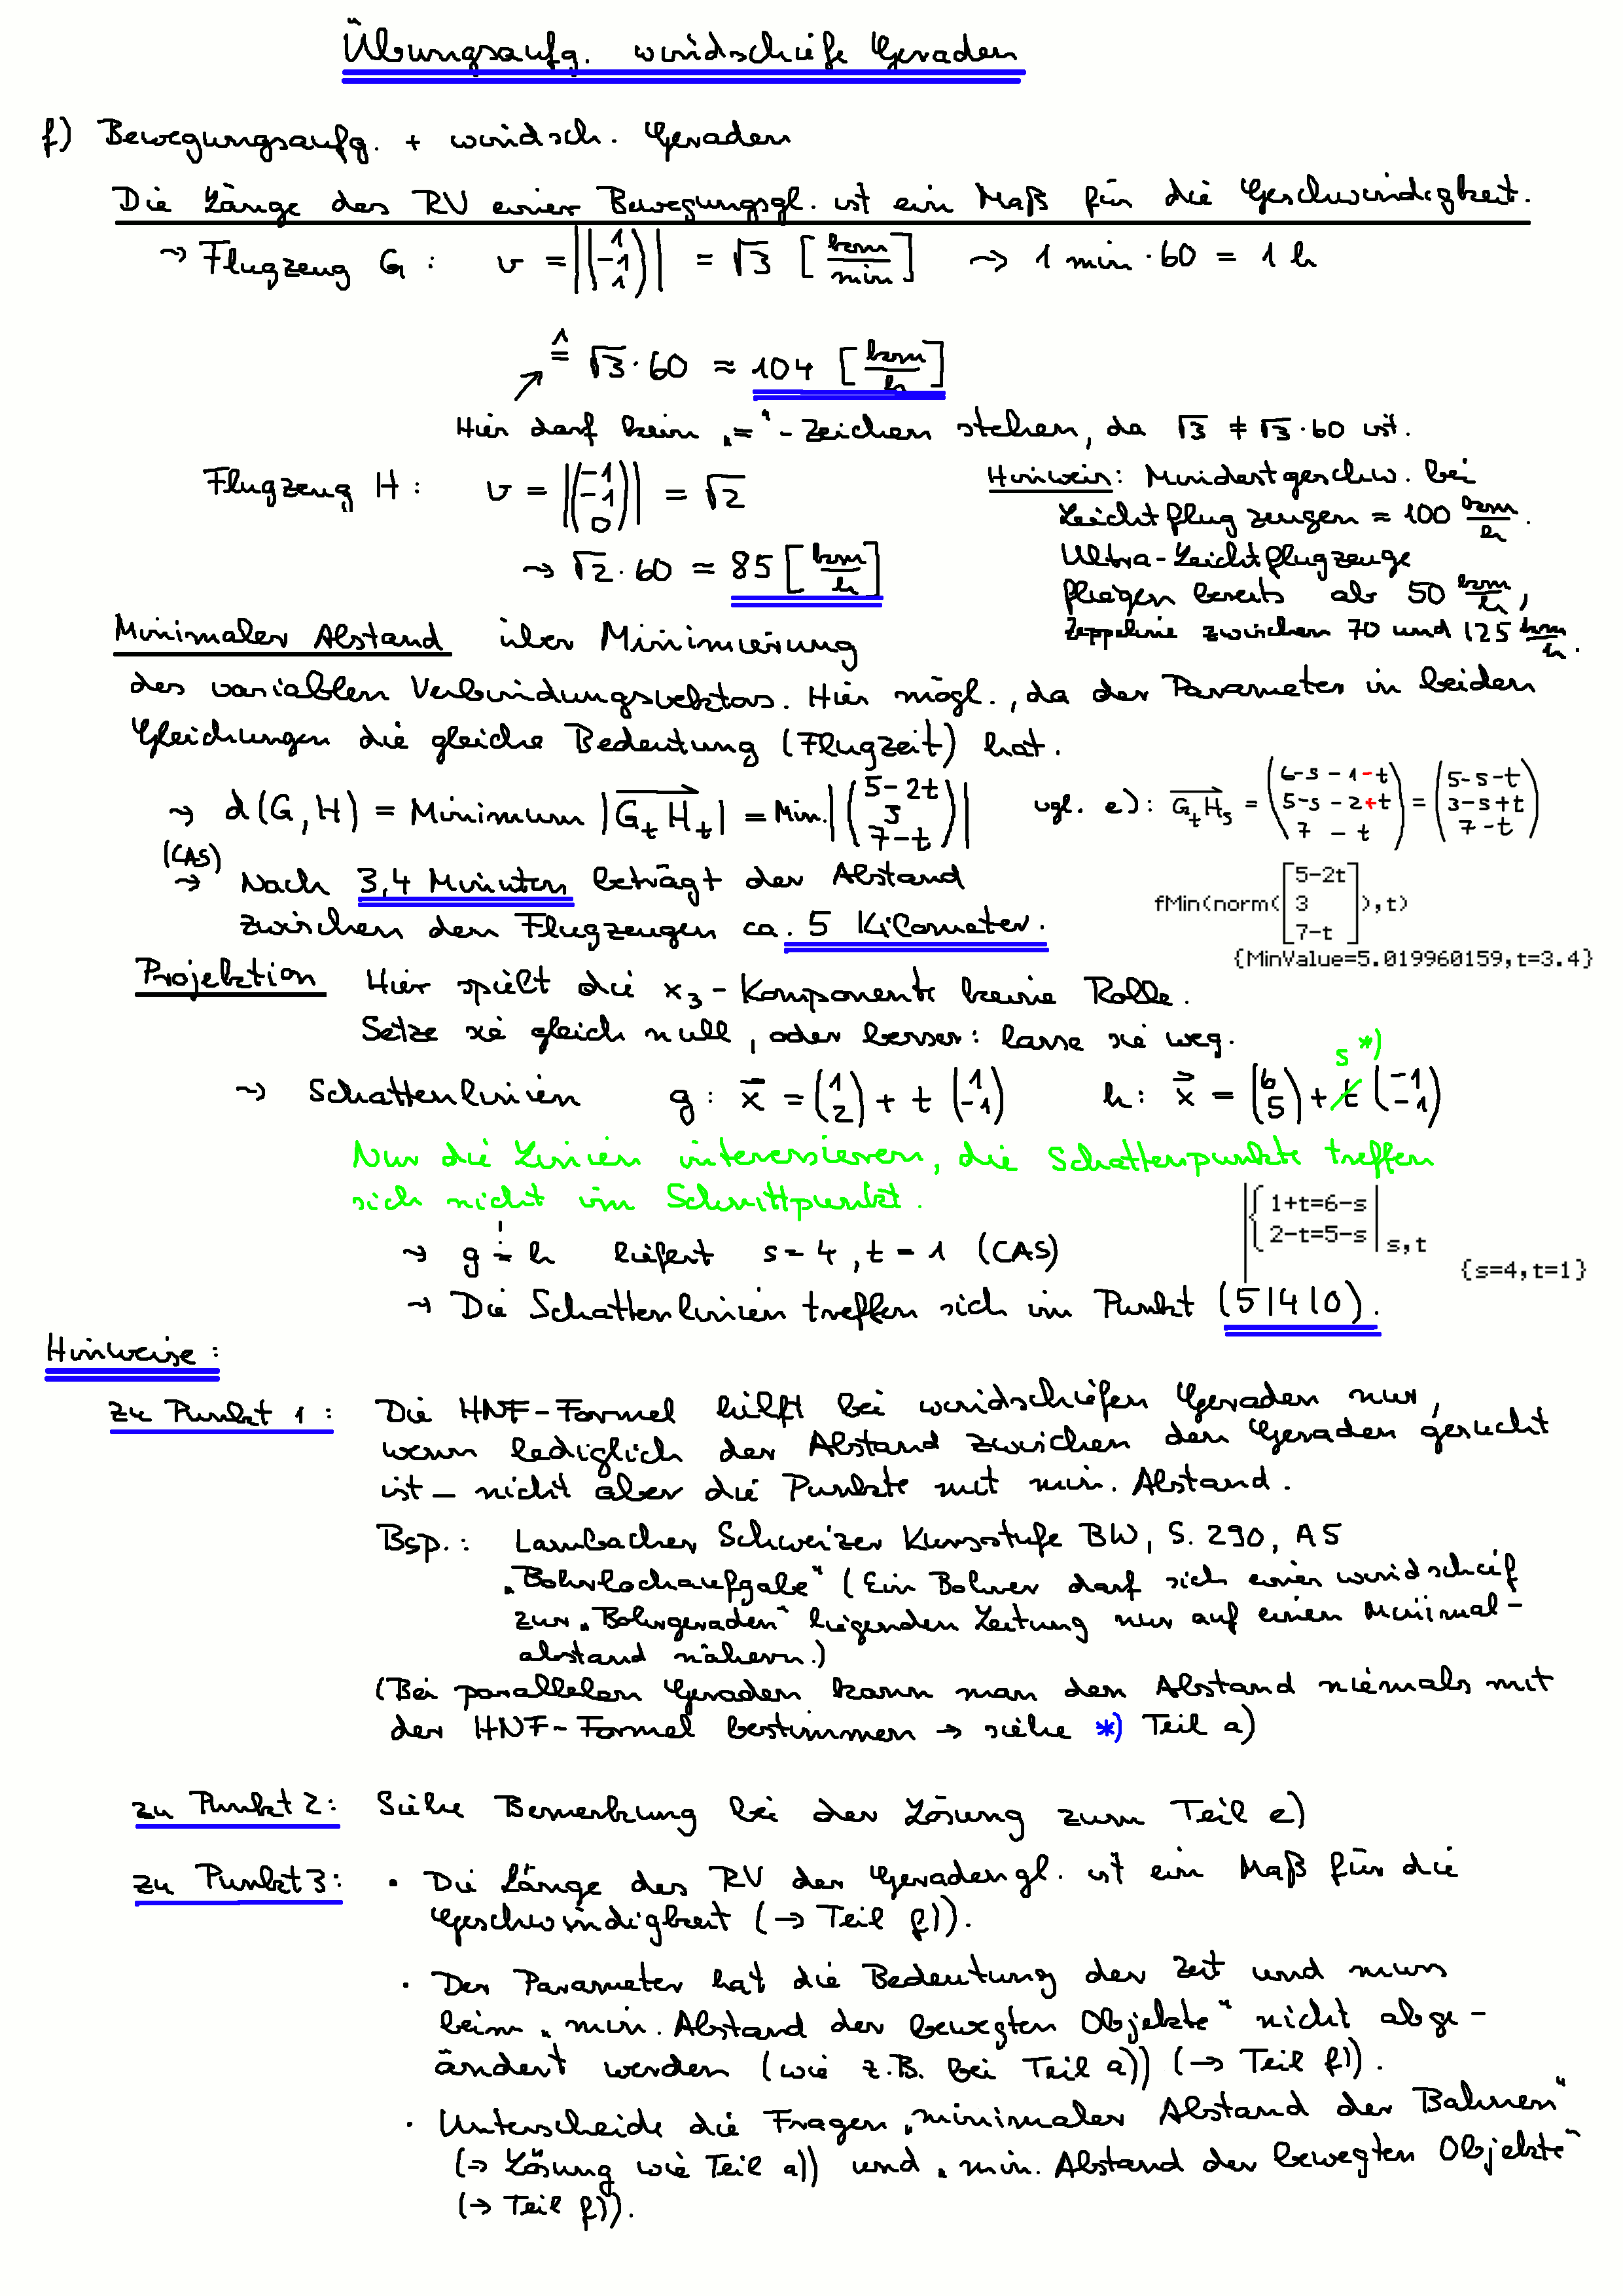 Übungsaufg. windschiefe Geraden
f) Bewegungsaufg. + windsch. Geraden
Die Länge des RV einer Bewegungsgl. ist ein Maß für die Geschwindigkeit.
⇝ Flugzeug G : v = |(1 -1 1)| = √3 [km/min] ⇝ 1 min · 60 = 1 h
≙ √3 · 60 ≈ 104 [km/h]
Hier darf kein „=“-Zeichen stehen, da √3 ≠ √3 · 60 ist.
Flugzeug H : v = |(-1 -1 0)| = √2
⇝ √2 · 60 ≈ 85 [km/h]
Hinweis: Mindestgeschw. bei
Leichtflugzeugen ≈ 100 km/h.
Ultra-Leichtflugzeuge
fliegen bereits ab 50 km/h,
Zeppeline zwischen 70 und 125 km/h.
Minimaler Abstand über Minimierung
des variablen Verbindungsvektors. Hier mögl., da der Parameter in beiden
Gleichungen die gleiche Bedeutung (Flugzeit) hat.
⇝ d(G,H) = Minimum |G_t H_t| = Min. |(5-2t 3 7-t)| vgl. e): G_t H_s = (6-s-1-t 5-s-2+t 7-t) = (5-s-t 3-s+t 7-t)
(CAS)
⇝ Nach 3,4 Minuten beträgt der Abstand
zwischen den Flugzeugen ca. 5 Kilometer.
fMin(norm([5-2t 3 7-t]),t)
{MinValue=5.019960159,t=3.4}
Projektion Hier spielt die x₃-Komponente keine Rolle.
Setze sie gleich null, oder besser: lasse sie weg.
s *)
⇝ Schattenlinien g: x = (1 2) + t (1 -1) h: x = (6 5) + t (-1 -1)
Nur die Linien interessieren, die Schattenpunkte treffen
sich nicht im Schnittpunkt.
⇝ g != h liefert s = 4, t = 1 (CAS)
{1+t=6-s
2-t=5-s | s,t
{s=4,t=1}
⇝ Die Schattenlinien treffen sich im Punkt (5|4|0).
Hinweise:
zu Punkt 1: Die HNF-Formel hilft bei windschiefen Geraden nur,
wenn lediglich der Abstand zwischen den Geraden gesucht
ist – nicht aber die Punkte mit min. Abstand.
Bsp.: Lambacher Schweizer Kursstufe BW, S. 290, A5
„Bohrlochaufgabe“ (Ein Bohrer darf sich einer windschief
zur „Bohrgeraden“ liegenden Leitung nur auf einen Minimal-
abstand nähern.)
(Bei parallelen Geraden kann man den Abstand niemals mit
der HNF-Formel bestimmen → siehe *) Teil a)
zu Punkt 2: Siehe Bemerkung bei der Lösung zum Teil e)
zu Punkt 3: • Die Länge des RV der Geradengl. ist ein Maß für die
Geschwindigkeit (→ Teil f)).
• Der Parameter hat die Bedeutung der Zeit und muss
beim „min. Abstand der bewegten Objekte“ nicht abge-
ändert werden (wie z.B. bei Teil a)) (→ Teil f)).
• Unterscheide die Fragen „minimaler Abstand der Bahnen“
(→ Lösung wie Teil a)) und „min. Abstand der bewegten Objekte“
(→ Teil f)).